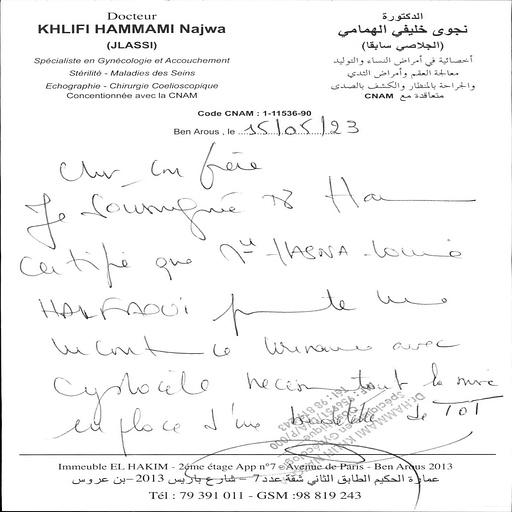 Docteur
KHLIFI HAMMAMI Najwa
(JLASSI)
Spécialiste en Gynécologie et Accouchement
Stérilité - Maladies des Seins
Echographie - Chirurgie Coelioscopique
Concentionnée avec la CNAM
الدكتورة
نجوى خليفي الهمامي
(الجلاصي سابقا)
أخصائية في أمراض النساء والتوليد
معالجة العقم وأمراض الثدي
والجراحة بالمنظار والكشف بالصدى
متعاقدة مع CNAM
Code CNAM : 1-11536-90
Ben Arous , le 15/05/23
Cher confrère
Je soussigné Dr Ham
certifie que Mme HASNA
HALFAOUI porte une
incont ce urinaire avec
cystocèle necess tant la mise
en place d'une bandelette de TOT
Immeuble EL HAKIM - 2éme étage App n°7 - Avenue de Paris - Ben Arous 2013
عمارة الحكيم الطابق الثاني شقة عدد 7 – شارع باريس 2013 – بن عروس
Tél : 79 391 011 - GSM :98 819 243